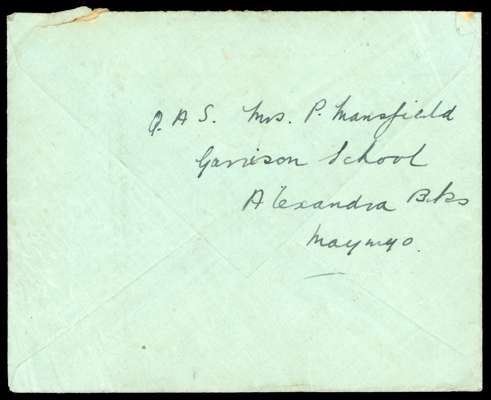 Q. A S. Mrs. P. Mansfield
Garrison School
Alexandra Bks
Maymyo.